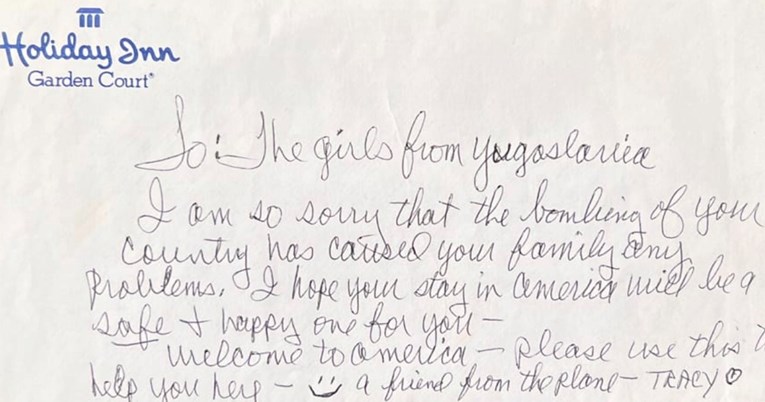 Holiday Inn
Garden Court®
To: The girls from Yugoslavia
I am so sorry that the bombing of your
country has caused your family any
problems. I hope your stay in America will be a
safe + happy one for you —
welcome to America — please use this
help you here — a friend from the plane — TRACY